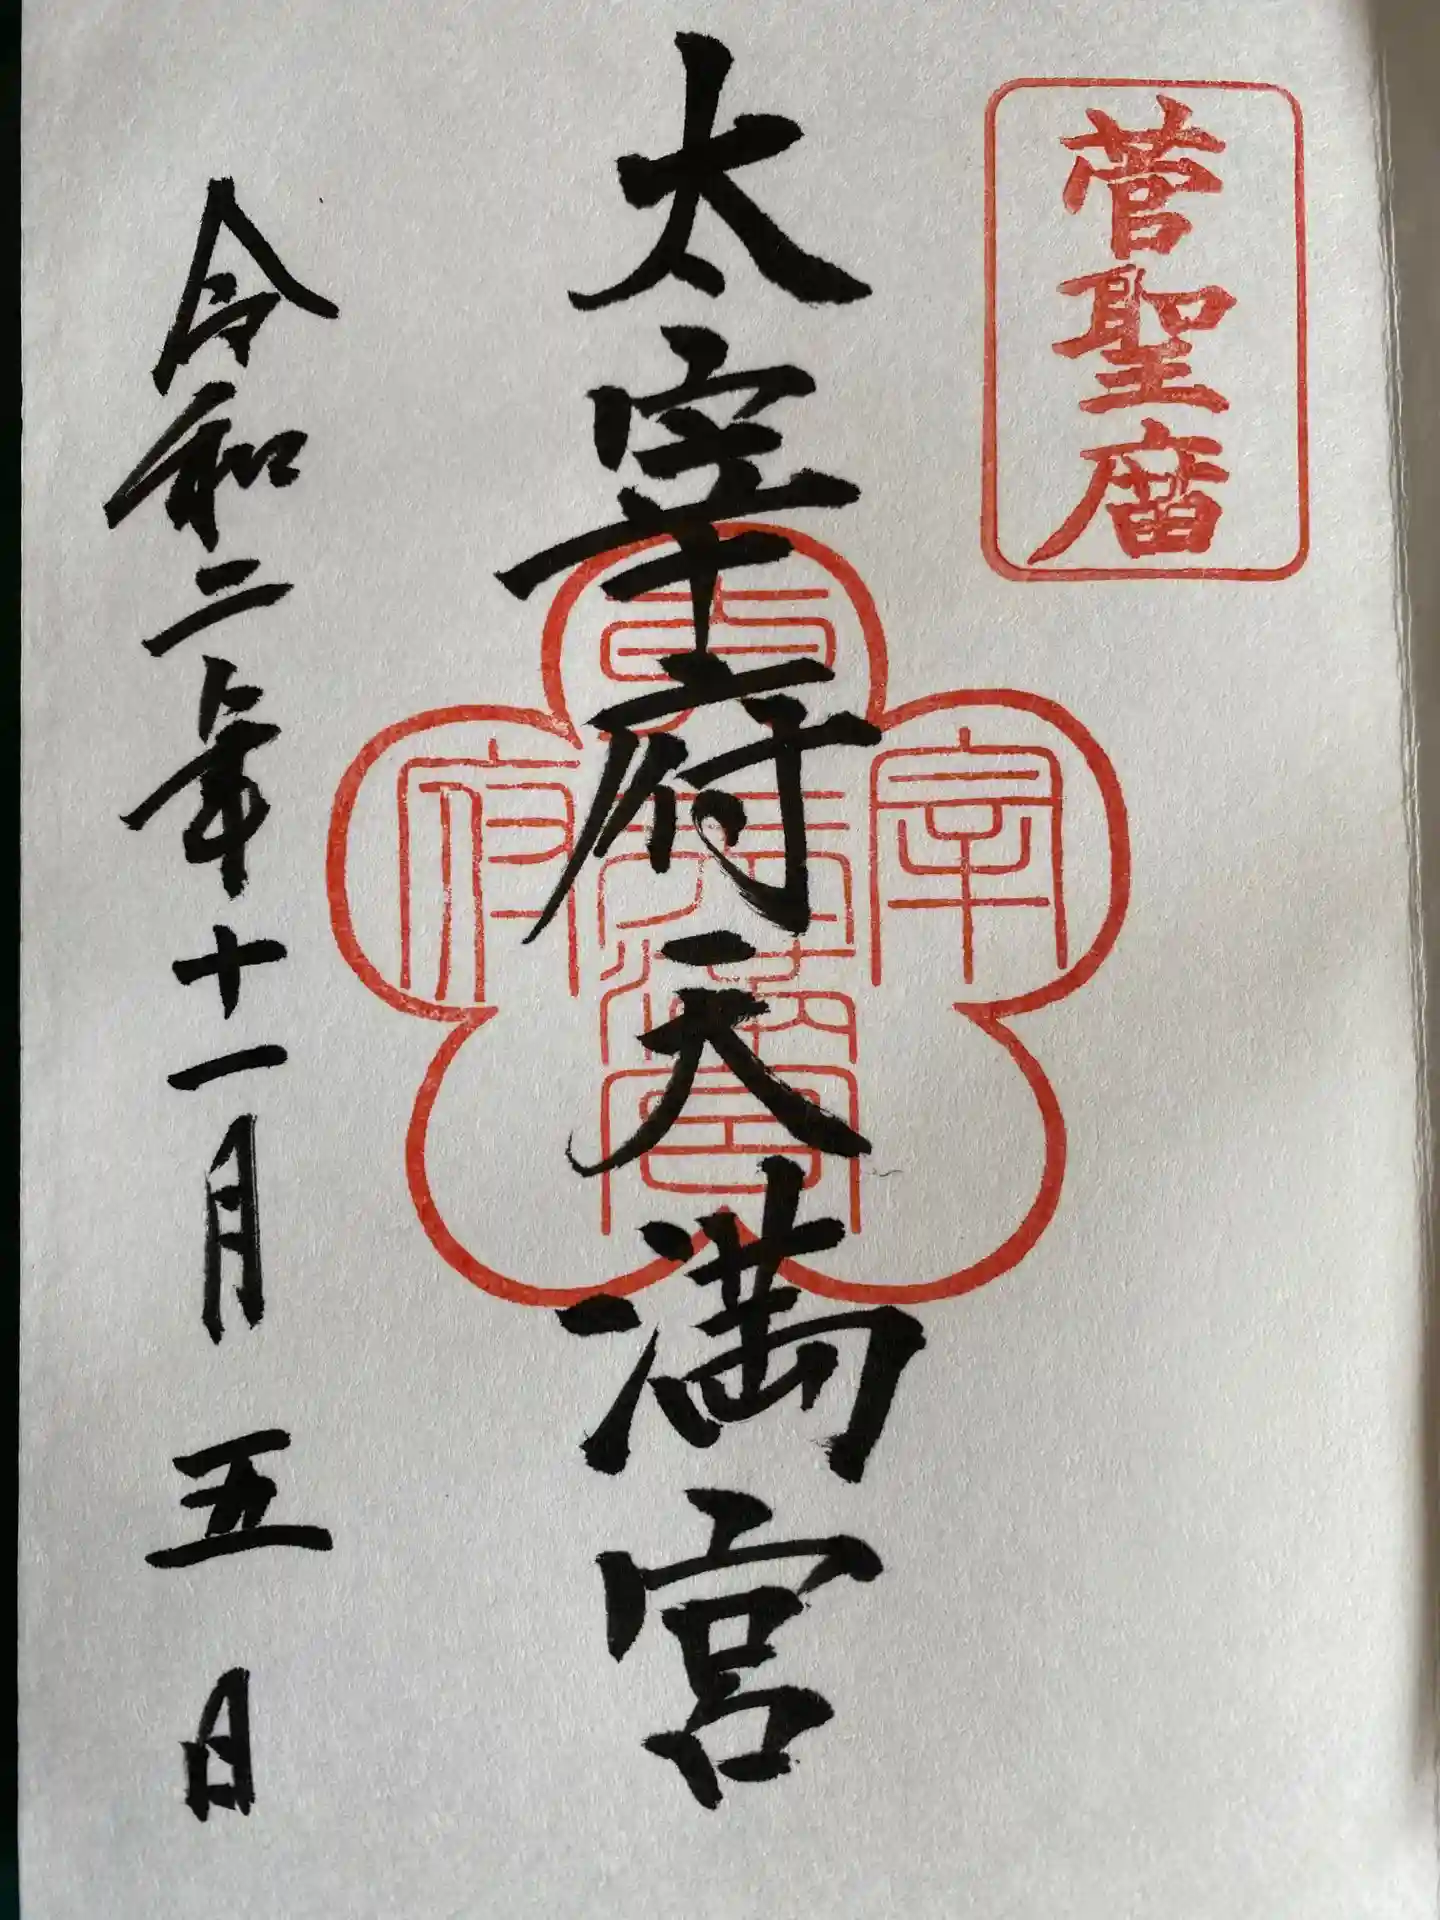 菅聖庿
太宰府天満宮
太宰府天満宮
令和二年十一月五日